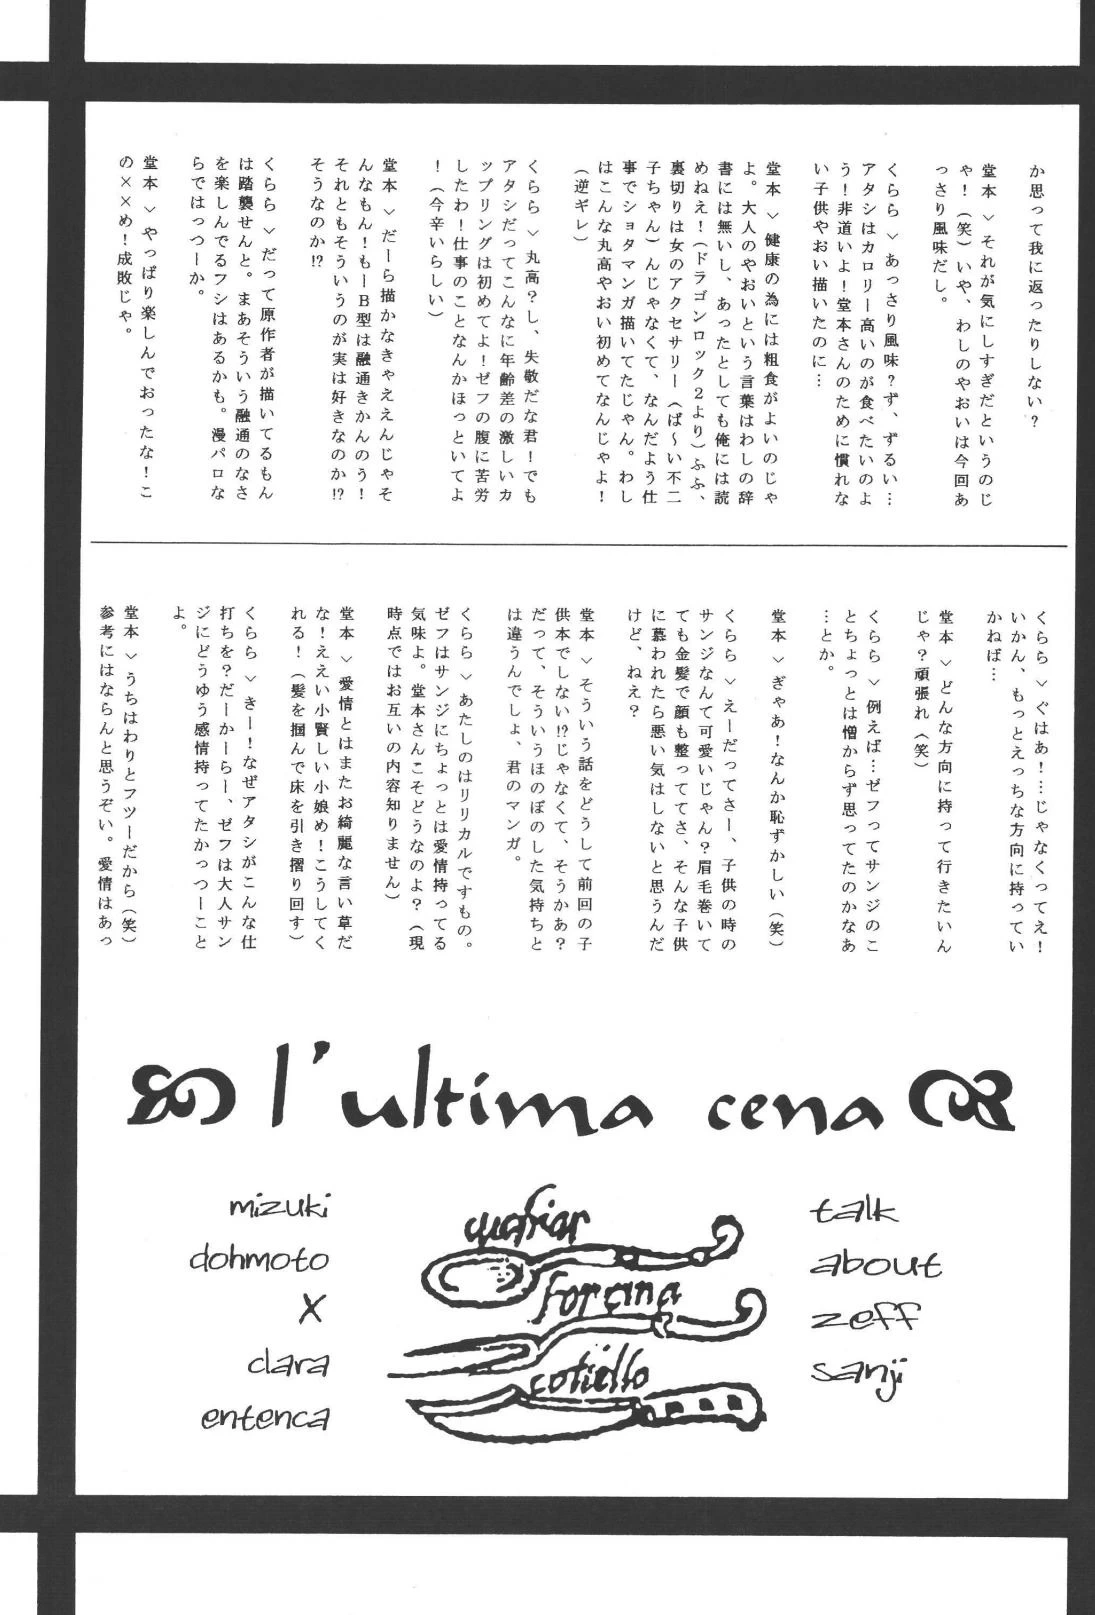 か思って我に返ったりしない？
堂本 ＞ それが気にしすぎだというのじ
ゃ！（笑）いや、わしのやおいは今回あ
っさり風味だし。
くらら ＞ あっさり風味？ず、ずるい…
アタシはカロリー高いのが食べたいのよ
う！非道いよ！堂本さんのために慣れな
い子供やおい描いたのに…
堂本 ＞ 健康の為には粗食がよいのじゃ
よ。大人のやおいという言葉はわしの辞
書には無いし、あったとしても俺には読
めねえ！（ドラゴンロック２より）ふふ、
裏切りは女のアクセサリー（ば〜い不二
子ちゃん）んじゃなくて、なんだよう仕
事でショタマンガ描いてたじゃん。わし
はこんな丸高やおい初めてなんじゃよ！
（逆ギレ）
くらら ＞ 丸高？し、失敬だな君！でも
アタシだってこんなに年齢差の激しいカ
ップリングは初めてよ！ゼフの腹に苦労
したわ！仕事のことなんかほっといてよ
！（今辛いらしい）
堂本 ＞ だーら描かなきゃええんじゃそ
んなもん！もーＢ型は融通きかんのう！
それともそういうのが実は好きなのか!?
そうなのか!?
くらら ＞ だって原作者が描いてるもん
は踏襲せんと。まあそういう融通のなさ
を楽しんでるフシはあるかも。漫パロな
らではっつーか。
堂本 ＞ やっぱり楽しんでおったな！こ
の××め！成敗じゃ。
くらら ＞ ぐはあ！…じゃなくってえ！
いかん、もっとえっちな方向に持ってい
かねば…
堂本 ＞ どんな方向に持って行きたいん
じゃ？頑張れ（笑）
くらら ＞ 例えば…ゼフってサンジのこ
とちょっとは憎からず思ってたのかなあ
…とか。
堂本 ＞ ぎゃあ！なんか恥ずかしい（笑）
くらら ＞ えーだってさー、子供の時の
サンジなんて可愛いじゃん？眉毛巻いて
ても金髪で顔も整っててさ、そんな子供
に慕われたら悪い気はしないと思うんだ
けど、ねえ？
堂本 ＞ そういう話をどうして前回の子
供本でしない!?じゃなくて、そうかあ？
だって、そういうほのぼのした気持ちと
は違うんでしょ、君のマンガ。
くらら ＞ あたしのはリリカルですもの。
ゼフはサンジにちょっとは愛情持ってる
気味よ。堂本さんこそどうなのよ？（現
時点ではお互いの内容知りません）
堂本 ＞ 愛情とはまたお綺麗な言い草だ
な！ええい小賢しい小娘め！こうしてく
れる！（髪を掴んで床を引き摺り回す）
くらら ＞ きー！なぜアタシがこんな仕
打ちを？だーかーらー、ゼフは大人サン
ジにどうゆう感情持ってたかっつーこと
よ。
堂本 ＞ うちはわりとフツーだから（笑）
参考にはならんと思うぞい。愛情はあっ
l'ultima cena
mizuki
dohmoto
X
clara
entenca
forcina
coltello
talk
about
zeff
sanji